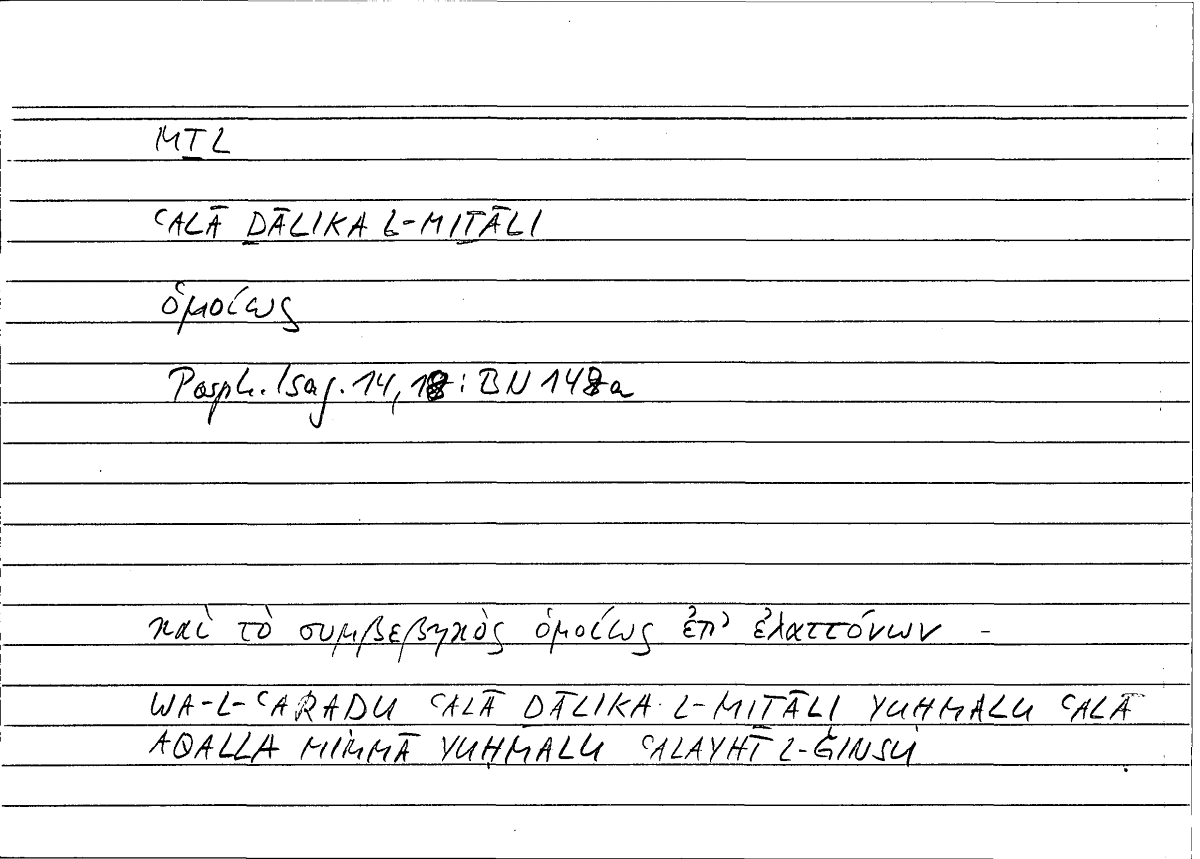 MṮL
ʿALĀ ḎĀLIKA L-MIṮĀLI
ὁμοίως
Porph. Isag. 14, 18: BN 148a
καὶ τὸ συμβεβηκὸς ὁμοίως ἐπ' ἐλαττόνων –
WA-L-ʿARADU ʿALĀ ḎĀLIKA L-MIṮĀLI YUḤMALU ʿALĀ
AQALLA MIMMĀ YUḤMALU ʿALAYHĪ L-ĠINSU